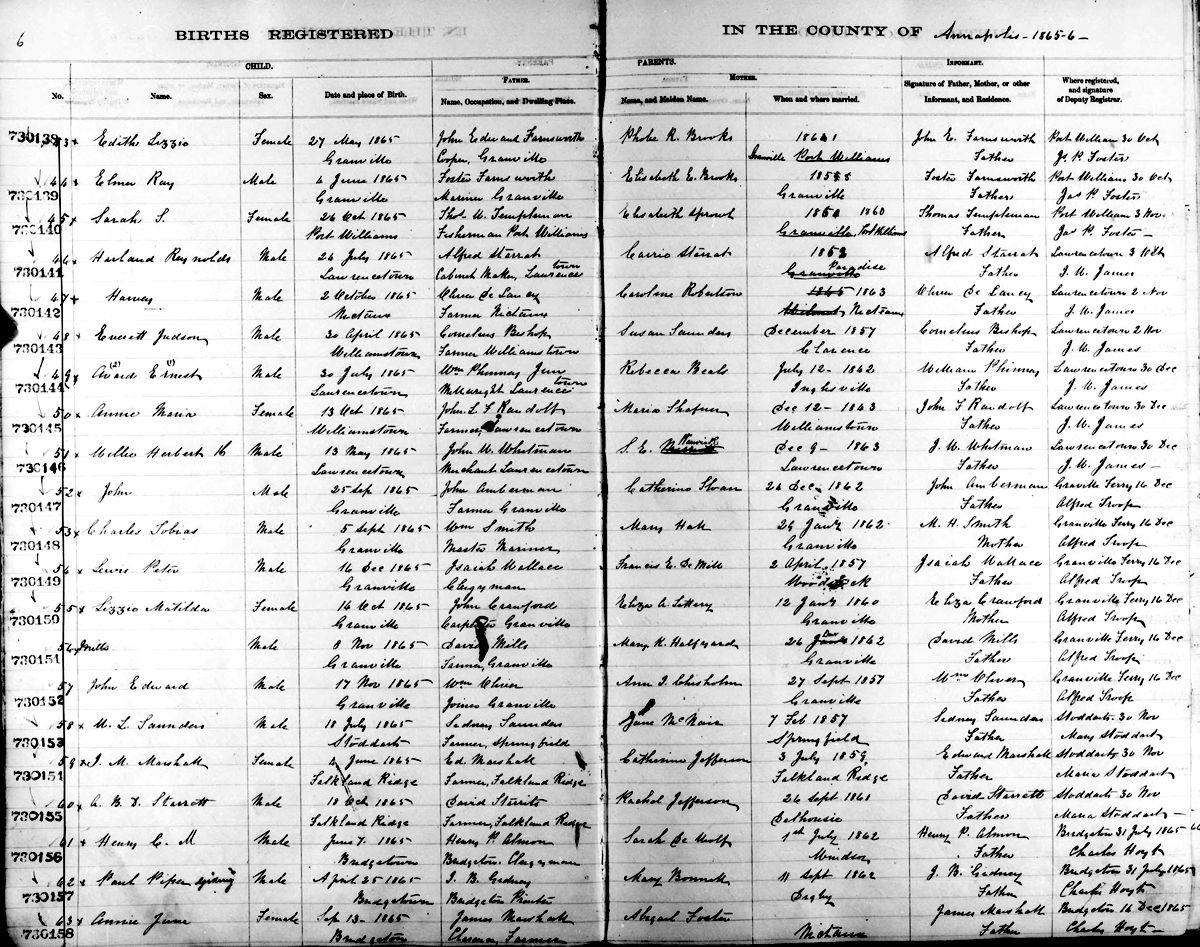 6
BIRTHS REGISTERED IN THE COUNTY OF Annapolis - 1865-6 -
CHILD. PARENTS. INFORMANT.
No. Name. Sex. Date and place of Birth. FATHER. Name, Occupation, and Dwelling Place. MOTHER. Name, and Maiden Name. When and where married. Signature of Father, Mother, or other Informant, and Residence. Where registered, and signature of Deputy Registrar.
730138 Edith Lizzie Female 27 May 1865 John Edward Farnsworth Phebe R. Brooks 1861 John E. Farnsworth Port William 30 Oct
Granville Cooper, Granville Granville Port Williams Father Jas P. Foster
44 x Elmer Ray Male 4 June 1865 Foster Farnsworth Elizabeth E. Brooks Foster Farnsworth Port William 30 Oct
730139 Granville Mariner Granville Granville Father Jas P. Foster
45 x Sarah S. Female 26 Oct 1865 Thos W. Templeman Elizabeth Sprowl 1860 Thomas Templeman Port William 3 Nov
730140 Port Williams Fisherman Port Williams Granville, Port Williams Father Jas P. Foster
46 x Harland Reynolds Male 26 July 1865 Alfred Starrat Carrie Starrat Alfred Starrat Lawrencetown 3
730141 Lawrencetown Cabinet Maker, Lawrencetown Granville Paradise Father J. W. James
47 x Harvey Male 2 October 1865 De Lancy Caroline Robertson 1865 1863 De Lancy Lawrencetown 2 Nov
730142 Nictaux Farmer Nictaux Nictaux Father J. W. James
48 x Everett Judson Male 30 April 1865 Cornelius Bishop Susan Saunders December 1857 Cornelius Bishop Lawrencetown 2 Nov
730143 Williamstown Farmer Williamstown Clarence Father J. W. James
49 x Avard (2) Ernest (1) Male 30 July 1865 Wm Phinney Jun Rebecca Beals July 12 - 1862 William Phinney Lawrencetown 30 Dec
730144 Lawrencetown Millwright Lawrencetown Inglisville Father J. W. James
50 x Annie Maria Female 13 Oct 1865 John L. F. Randolf Maria Shafner Dec 12 - 1843 John F Randolf Lawrencetown 30 Dec
730145 Williamstown Farmer, Lawrencetown Williamstown Father J. W. James
51 x Willie Herbert H Male 13 May 1865 John W. Whitman S. E. Dec 9 - 1863 J. W. Whitman Lawrencetown 30 Dec
730146 Lawrencetown Merchant Lawrencetown Lawrencetown Father J. W. James
52 x John Male 25 Sep 1865 John Amberman Catherine Sloan 26 Dec 1862 John Amberman Granville Ferry 16 Dec
730147 Granville Farmer Granville Granville Father Alfred Troop
53 x Charles Tobias Male 5 Sept 1865 Wm Smith Mary Hall 29 Jany 1862 M. H. Smith Granville Ferry 16 Dec
730148 Granville Master Mariner Granville Mother Alfred Troop
54 x Lewis Peter Male 16 Dec 1865 Isaiah Wallace Francis E. De Mill 2 April 1857 Isaiah Wallace Granville Ferry 16 Dec
730149 Granville Clergyman Woodstock Father Alfred Troop
55 x Lizzie Matilda Female 14 Oct 1865 John Crawford Eliza A. Littery 12 Jany 1860 Eliza Crawford Granville Ferry 16 Dec
730150 Granville Carpenter Granville Granville Mother Alfred Troop
56 x Mills Male 8 Nov 1865 David Mills Mary K. Halfyard 26 1862 David Mills Granville Ferry 16 Dec
730151 Granville Farmer, Granville Granville Father Alfred Troop
57 John Edward Male 17 Nov 1865 Wm Oliver Ann I. Chisholm 27 Sept 1857 Wm Oliver Granville Ferry 16 Dec
730152 Granville Joiner Granville Granville Father Alfred Troop
58 x W. L. Saunders Male 18 July 1865 Sidney Saunders Jane McNair 7 Feb 1857 Sidney Saunders Stoddarts 30 Nov
730153 Stoddarts Farmer, Springfield Springfield Father Mary Stoddart
59 x I. M. Marshall Female 4 June 1865 Ed. Marshall Catherine Jefferson 3 July 1859 Edward Marshall Stoddarts 30 Nov
730154 Falkland Ridge Farmer, Falkland Ridge Falkland Ridge Father Maria Stoddart
60 x A. B. D. Starrett Male 18 Oct 1865 David Starrit Rachel Jefferson 26 Sept 1861 David Starratt Stoddarts 30 Nov
730155 Falkland Ridge Farmer, Falkland Ridge Dalhousie Father Maria Stoddart
61 x Henry C. M Male June 7. 1865 Henry P. Almon Sarah De Wolf 1st July 1862 Henry P. Almon Bridgeton 31 July 1865
730156 Bridgetown Bridgeton, Clergyman Windsor Father Charles Hoyt
62 x Paul Piper Male April 25 1865 J. B. Gidney Mary Bonnett 11 Sept 1862 J. B. Gidney Bridgeton 31 July 1865
730157 Bridgetown Bridgeton Printer Digby Father Charles Hoyt
63 x Annie Jane Female Sep 13 - 1865 James Marshall Abigail Foster James Marshall Bridgeton 16 Dec 1865
730158 Bridgeton Clarence, Farmer Nictaux Father Charles Hoyt